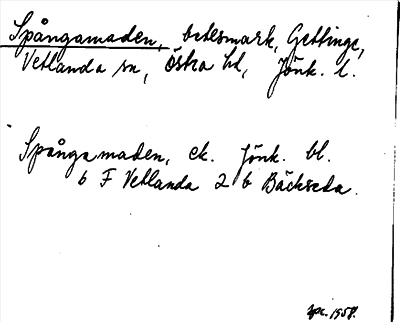 Spångamaden, betesmark, Gettinge,
Vetlanda sn, Östra hd, Jönk. l.
Spångamaden, ek. Jönk. bl.
6 F Vetlanda 2 b Bäckseda.
1958.